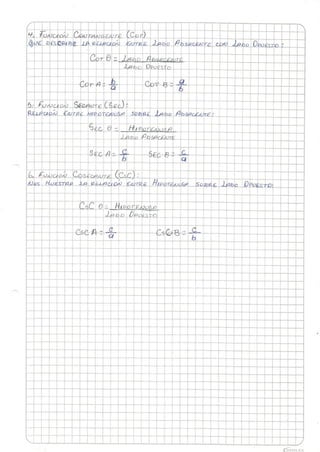 4. Función Cotangente (Cot)
que describe la relación entre lado Adyacente con lado Opuesto:
Cot θ = Lado Adyacente
Lado Opuesto
Cot A = b/a Cot B = a/b
5. Función Secante (Sec):
Relación entre Hipotenusa sobre lado Adyacente:
Sec θ = Hipotenusa
Lado Adyacente
Sec A = c/b Sec B = c/a
6. Función Cosecante (Csc):
Nos muestra la relación entre Hipotenusa sobre lado Opuesto:
Csc θ = Hipotenusa
Lado Opuesto
Csc A = c/a Csc B = c/b